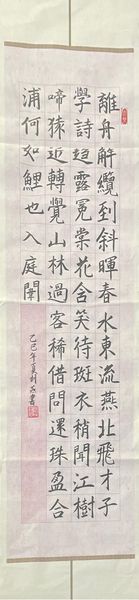 離舟解纜到斜暉春水東流燕北飛才子
學詩趨露冕棠花含笑待斑衣稍聞江樹
啼猿近轉覺山林過客稀借問還珠盈合
浦何如鯉也入庭闈
乙巳年夏書